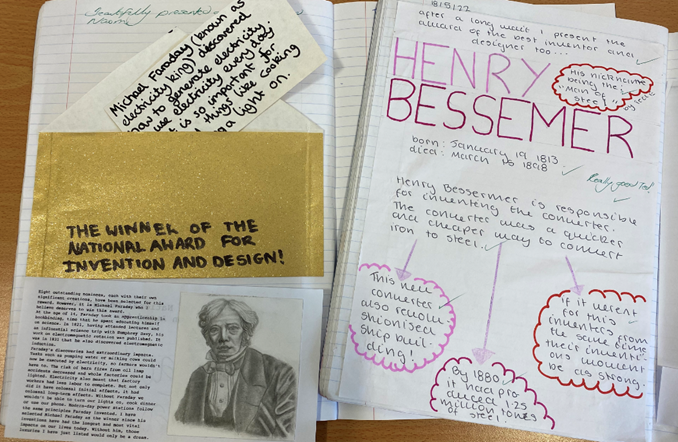 Beautifully presented
Michael Faraday (known as
electricity king) discovered
how to generate electricity.
use electricity every day.
is so important for
things like cooking
a light on.
THE WINNER OF THE
NATIONAL AWARD FOR
INVENTION AND DESIGN!
Eight outstanding nominees, each with their own
significant creations, have been selected for this
reward. However, it is Michael Faraday who I
believe deserves to win this award.
At the age of 14, Faraday took an apprenticeship in
bookbinding, time that he spent educating himself
on science. In 1821, having attended lectures and
an influential science trip with Humphrey Davy, his
work on electromagnetic rotation was published. It
was in 1831 that he also discovered electromagnetic
induction.
Faraday's discoveries had extraordinary impacts.
Tasks such as pumping water or milking cows could
now be executed by electricity, so farmers wouldn't
have to. The risk of best fires from oil lamps was
evidently improved and whole factories could be
lighted. Electricity also meant that factory
workers had less labor to complete. But not only
did it have colossal initial effects, it had
colossal long-term effects. Without Faraday we
wouldn't be able to turn our lights on, cook dinner
or use our phone. Modern-day power stations follow
the same principles Faraday invented. I have
selected Michael Faraday as the winner since his
inventions have had the longest and most vital
impacts on our lives today. Without him, those
luxuries I have just listed would only be a dream.
18/5/22
after a long wait I present the
award of the best inventor and
designer too...
HENRY
BESSEMER
His nickname
being the:
"Man of
steel"
born: January 19 1813.
died: March 15 1898
Really good Tod!
Henry Bessermer is responsible
for inventing the converter.
The converter was a quicker
and cheaper way to convert
iron to steel.
This new
converter
also revolu-
shionised
ship buil-
ding!
By 1880,
it had pro
duced 1.25
million tones
of steel.
If it werent
for this
inventers from
the same
their inventi-
ons woment
be as strong.